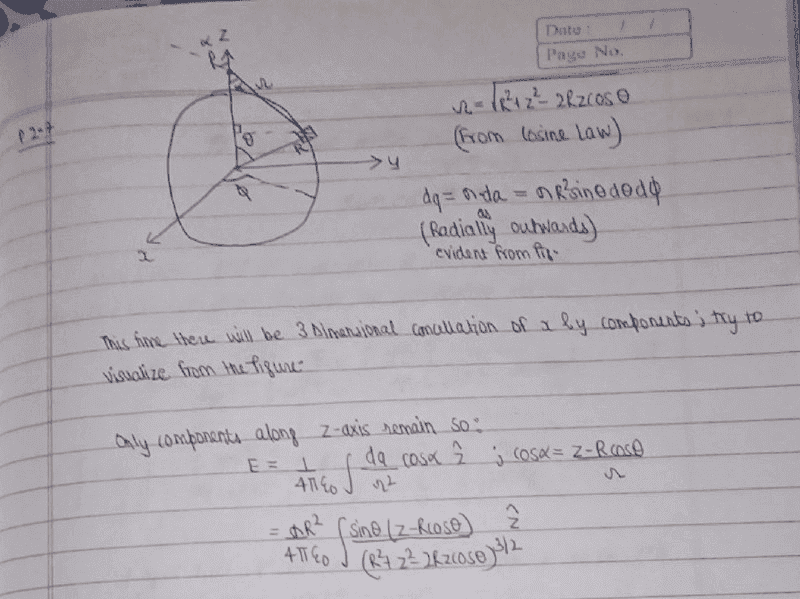 Date : / /
Page No.
P 2.7
α z
P
r
θ
R
y
φ
x
r = √R²+z²-2Rzcosθ
(From Cosine Law)
dq = σda = σR²sinθdθdϕ
(Radially outwards)
as
evident from fig.
This time there will be 3 Dimensional cancellation of x & y components; try to
visualize from the figure.
Only components along z-axis remain so:
E = 1/4πε₀ ∫ dq/r² cosα ẑ ; cosα = z-Rcosθ/r
= σR²/4πε₀ ∫ sinθ(z-Rcosθ)/(R²+z²-2Rzcosθ)^3/2 ẑ